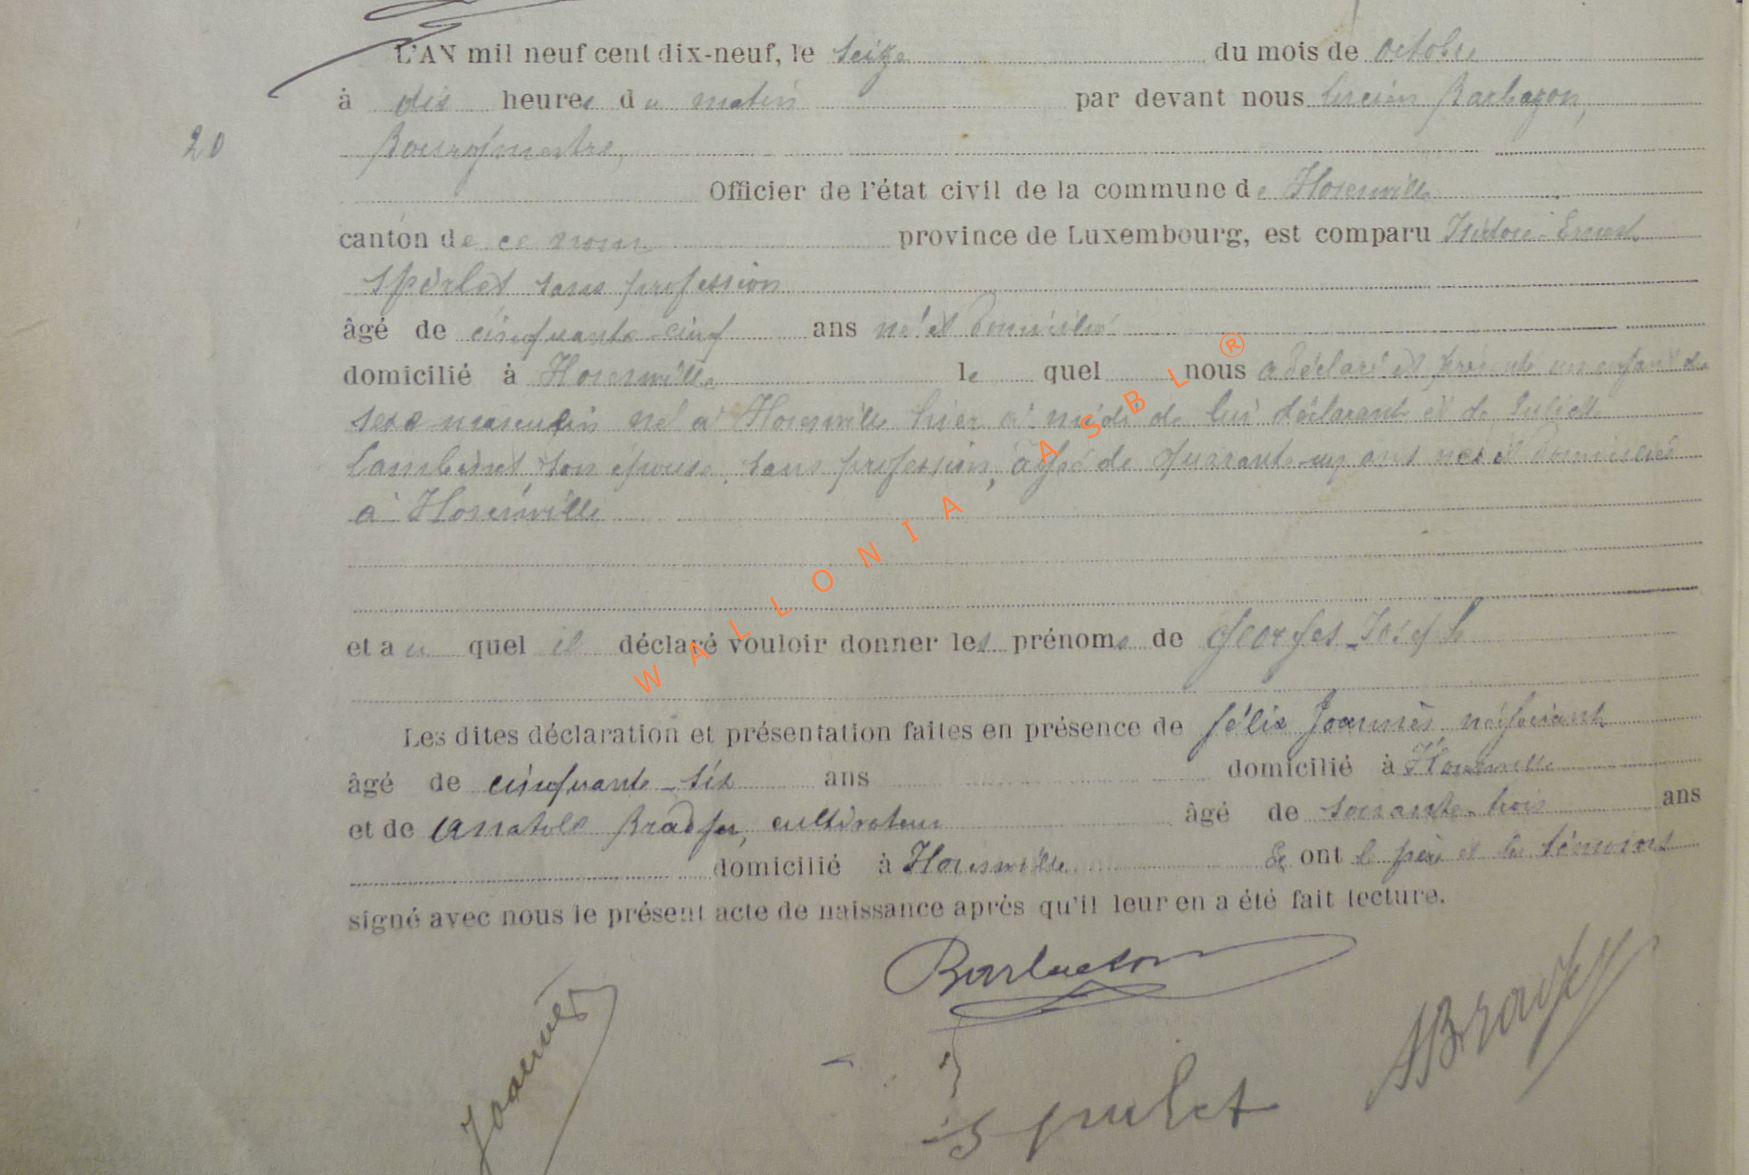 L'AN mil neuf cent dix-neuf, le seize du mois de octobre
à dix heures du matin par devant nous Lucien Barbazon,
20 Bourgmestre,
Officier de l'état civil de la commune de Horenville
canton de ce nom province de Luxembourg, est comparu Ernest
sans profession
âgé de cinquante-cinq ans né et domicilié
domicilié à Horenville le quel nous a déclaré et présenté un enfant du
sexe masculin né à Horenville hier à midi de lui déclarant et de Juliette
Lambinet, son épouse, sans profession, âgée de quarante-un ans nés et domiciliés
à Horenville
et au quel il déclaré vouloir donner les prénoms de Georges-Joseph
Les dites déclaration et présentation faites en présence de Félix Joannès, négociant
âgé de cinquante-six ans domicilié à Horenville
et de Anatole Bradfer, cultivateur âgé de soixante-trois ans
domicilié à Horenville & ont le père et les témoins
signé avec nous le présent acte de naissance après qu'il leur en a été fait lecture.
WALLONIA ASBL ®
Joannès